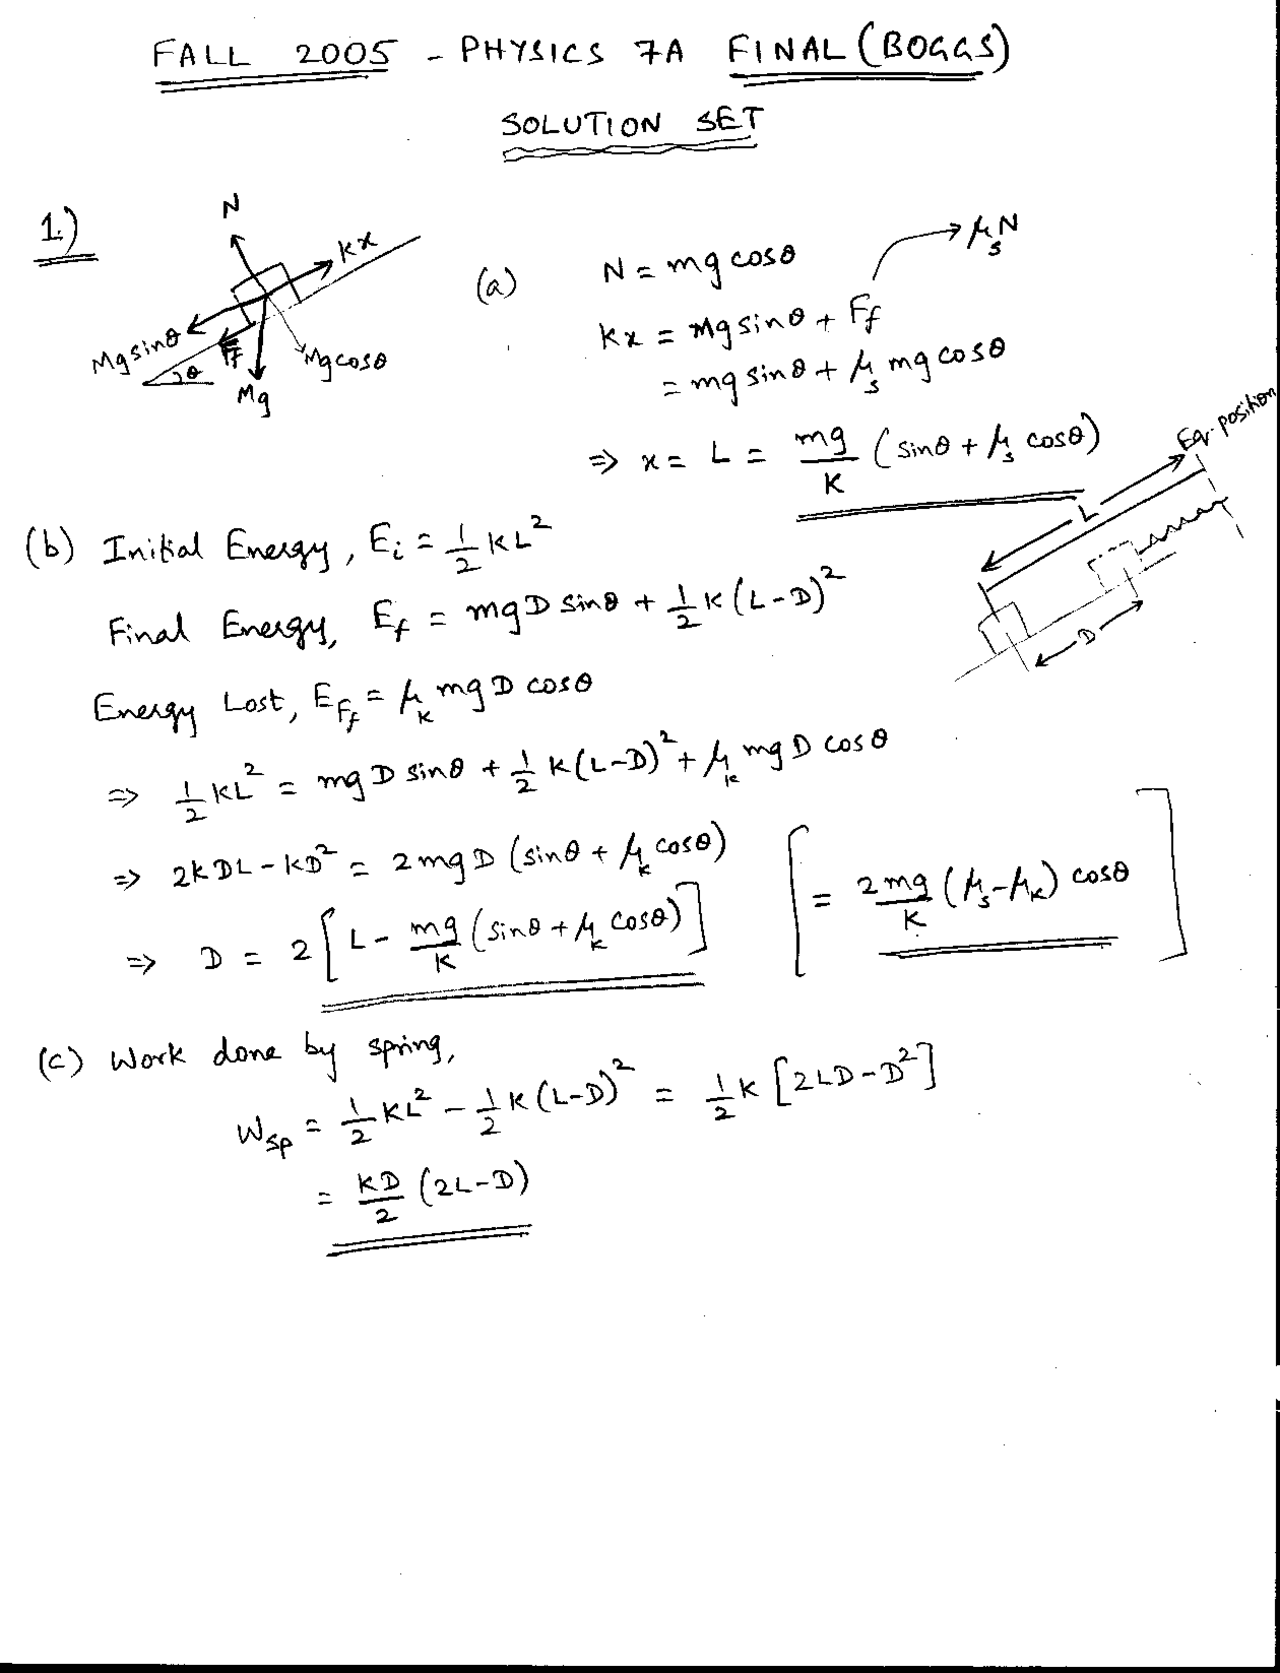 FALL 2005 - PHYSICS 7A FINAL (BOGGS)
SOLUTION SET
1.)
N
kx
Mg sinθ
Ff
θ
Mg
Mg cosθ
(a) N = mg cosθ
→ μsN
kx = mg sinθ + Ff
= mg sinθ + μs mg cosθ
⇒ x = L = mg/K (sinθ + μs cosθ)
Eq. position
L
D
(b) Initial Energy, Ei = 1/2 KL²
Final Energy, Ef = mgD sinθ + 1/2 K(L-D)²
Energy Lost, EFf = μk mgD cosθ
⇒ 1/2 KL² = mgD sinθ + 1/2 K(L-D)² + μk mgD cosθ
⇒ 2KDL - KD² = 2mgD (sinθ + μk cosθ)
⇒ D = 2[L - mg/K (sinθ + μk cosθ)] [= 2mg/K (μs-μk) cosθ]
(c) Work done by spring,
Wsp = 1/2 KL² - 1/2 K(L-D)² = 1/2 K [2LD-D²]
= KD/2 (2L-D)